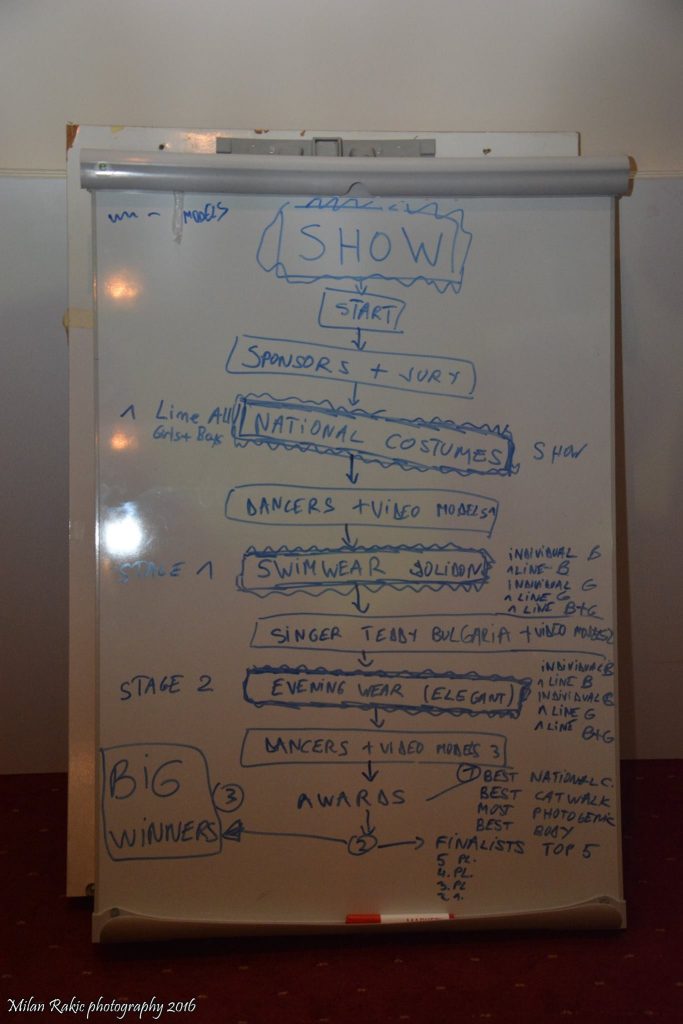 MODELS
SHOW
START
SPONSORS + JURY
1 Line All
Girls + Boys
NATIONAL COSTUMES
SHOW
DANCERS + VIDEO MODELS 1
STAGE 1
SWIMWEAR JOLIDON
INDIVIDUAL B
1 LINE B
INDIVIDUAL G
1 LINE G
1 LINE B+G
SINGER TEDDY BULGARIA + VIDEO MODELS 2
STAGE 2
EVENING WEAR (ELEGANT)
INDIVIDUAL B
1 LINE B
INDIVIDUAL
1 LINE G
1 LINE B+G
DANCERS + VIDEO MODELS 3
AWARDS
1 BEST NATIONAL C.
BEST CATWALK
MOST PHOTOGENIC
BEST BODY
BIG
WINNERS
3
2
FINALISTS TOP 5
5 PL.
4. PL
3. PL
MARKER
Milan Rakic photography 2016